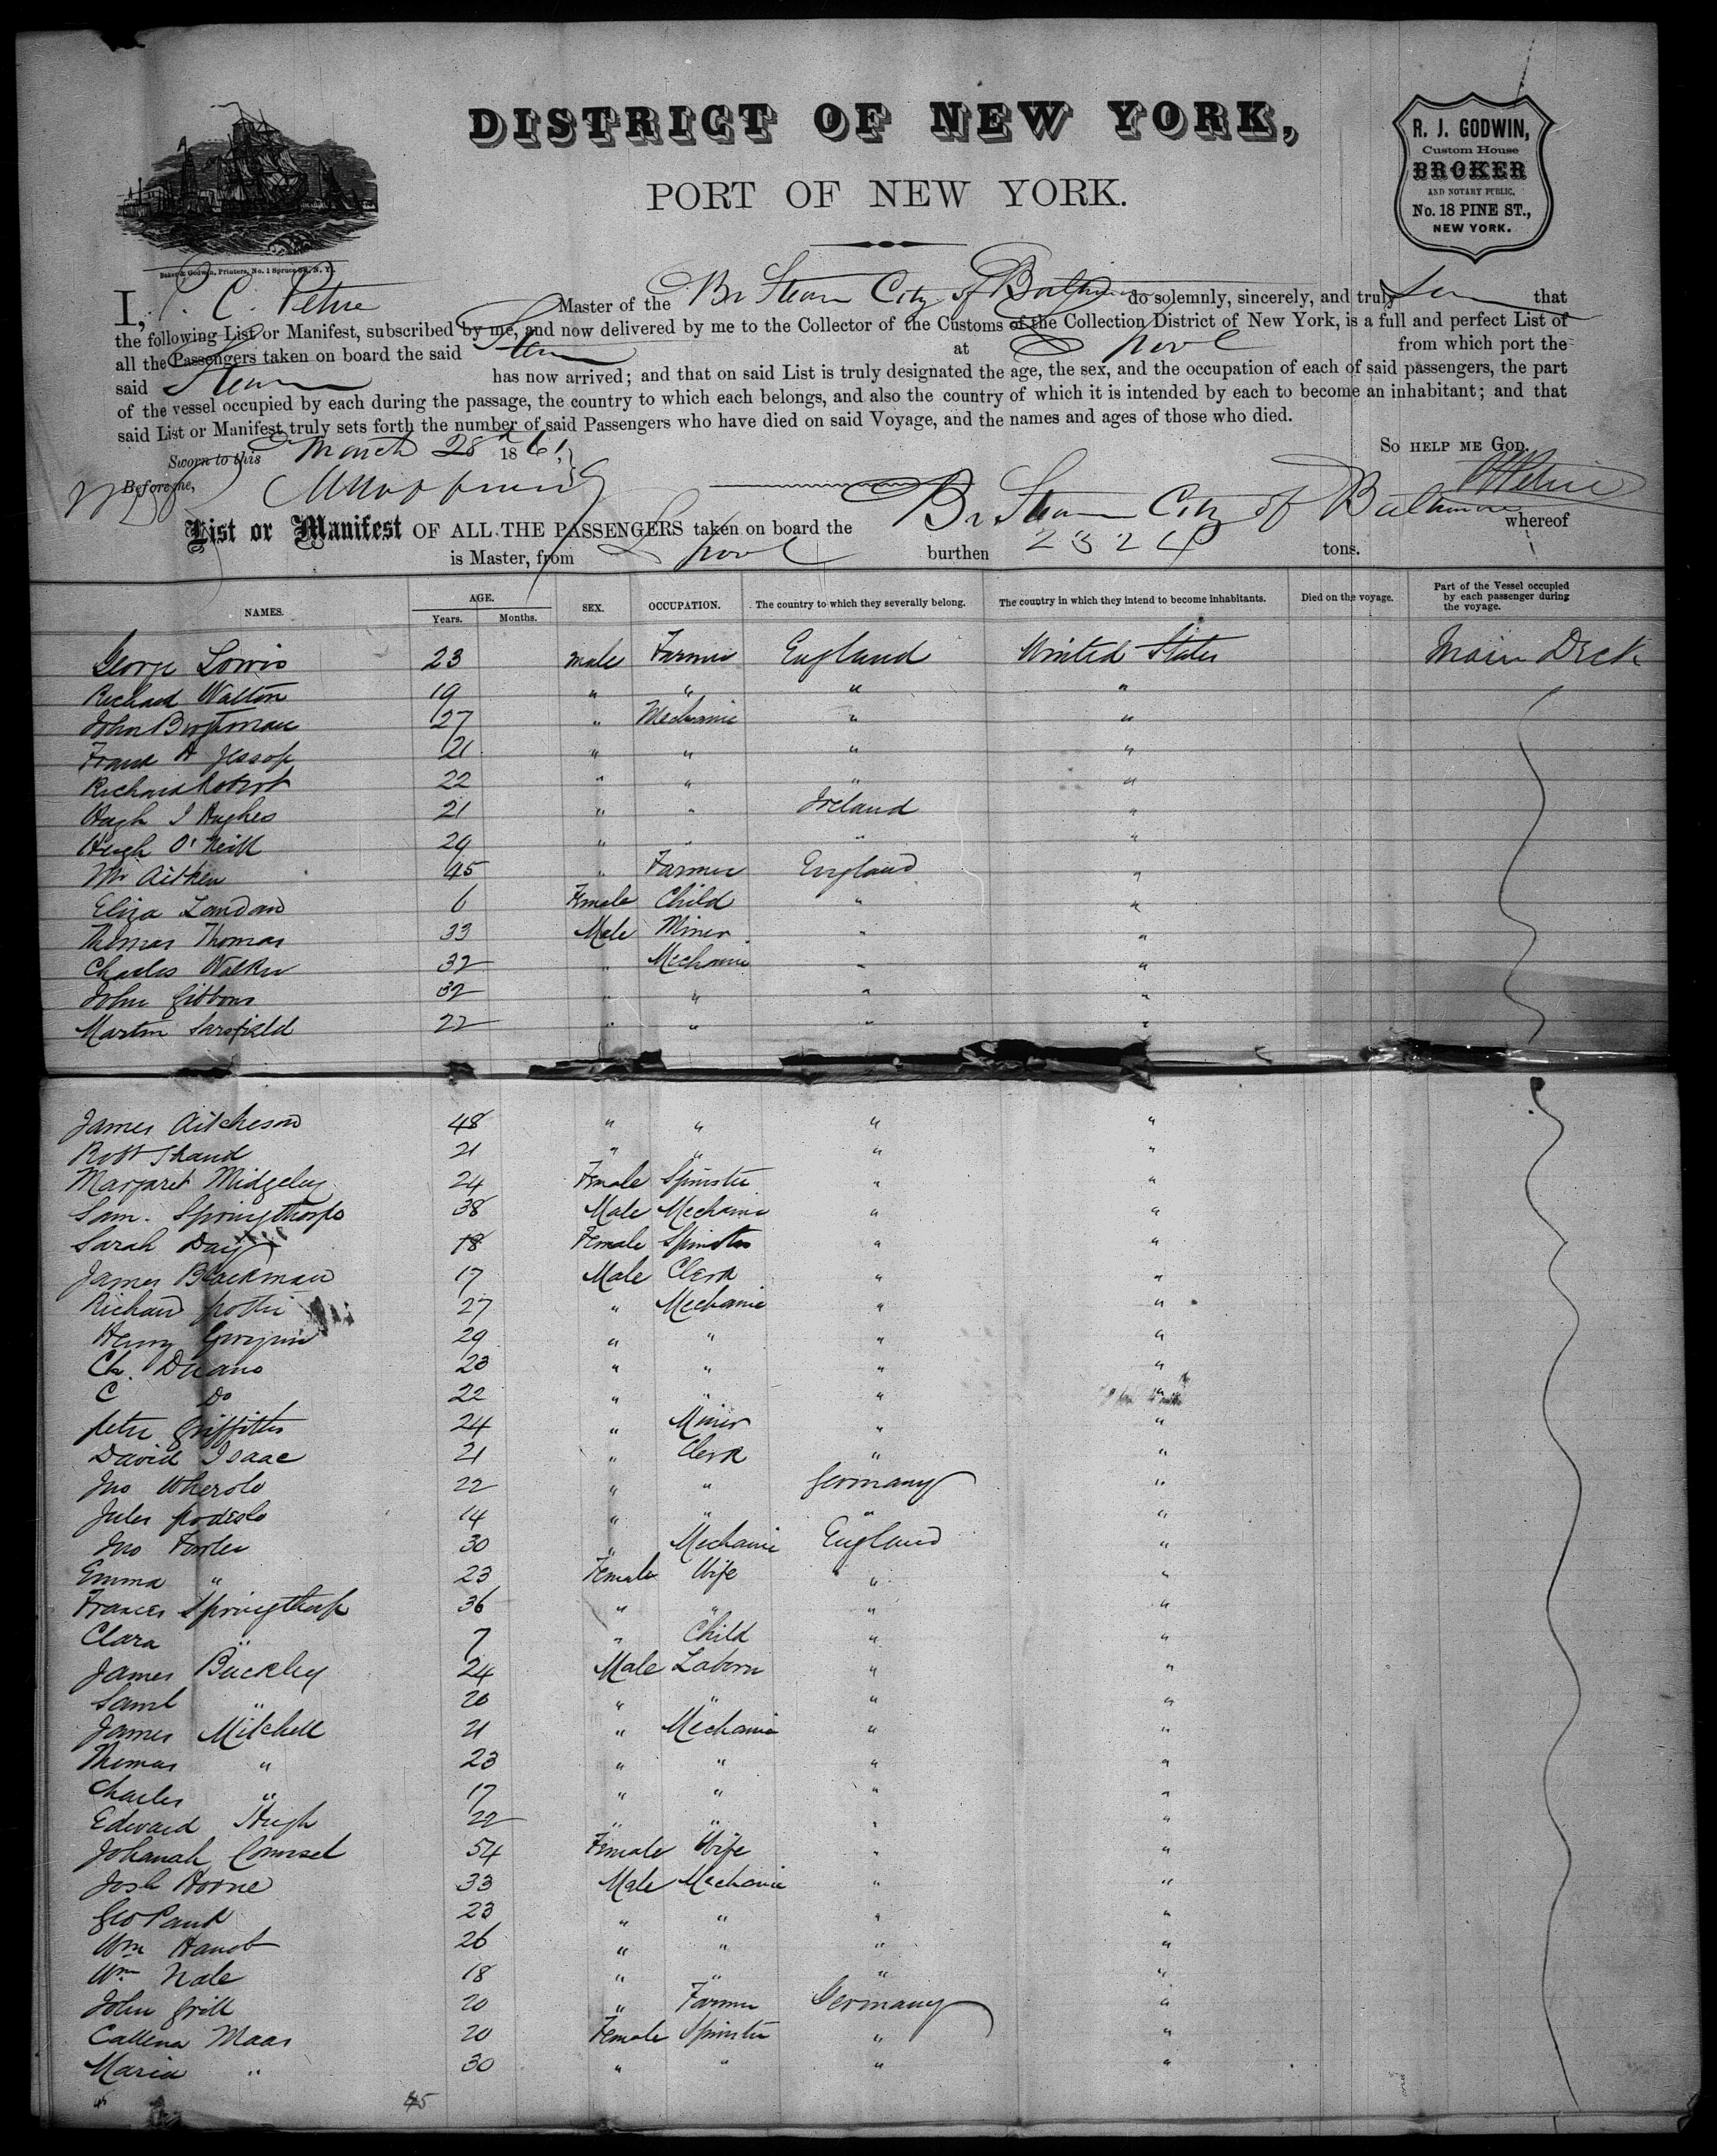 DISTRICT OF NEW YORK,
PORT OF NEW YORK.
R. J. GODWIN,
Custom House
BROKER
AND NOTARY PUBLIC,
No. 18 PINE ST.,
NEW YORK.
Baker & Godwin, Printers, No. 1 Spruce St., N. Y.
I, C. Petrie Master of the Br Steam City of Baltimore do solemnly, sincerely, and truly that
the following List or Manifest, subscribed by me, and now delivered by me to the Collector of the Customs of the Collection District of New York, is a full and perfect List of
all the Passengers taken on board the said Steam at L'pool from which port the
said Steam has now arrived; and that on said List is truly designated the age, the sex, and the occupation of each of said passengers, the part
of the vessel occupied by each during the passage, the country to which each belongs, and also the country of which it is intended by each to become an inhabitant; and that
said List or Manifest truly sets forth the number of said Passengers who have died on said Voyage, and the names and ages of those who died.
Sworn to this March 28 1861, SO HELP ME GOD.
Before me, Petrie
List or Manifest OF ALL THE PASSENGERS taken on board the Br Steam City of Baltimore whereof
is Master, from L'pool burthen 2324 tons.
NAMES. AGE. Years. Months. SEX. OCCUPATION. The country to which they severally belong. The country in which they intend to become inhabitants. Died on the voyage. Part of the Vessel occupied by each passenger during the voyage.
George Lowis 23 male Farmer England United States Main Deck
Richard Walton 19 " " " "
John 27 " Mechanic " "
Frank H Jessop 21 " " " "
Richard 22 " " " "
Hugh J Hughes 21 " " Ireland "
Hugh O'Neill 29 " " " "
Mr Aitken 45 " Farmer England "
Eliza Landan 6 Female Child " "
Thomas Thomas 33 Male Miner " "
Charles Walker 32 " Mechanic " "
John Gibbons 32 " " " "
Martin Sarsfield 22 " " " "
James Aitcheson 48 " " " "
Robt Shand 21 " " " "
Margaret Midgeley 24 Female Spinster " "
Sam. Springthorpe 38 Male Mechanic " "
Sarah Day 18 Female Spinster " "
James Blackman 17 Male Clerk " "
Richard 27 " Mechanic " "
Henry 29 " " " "
Ch. 23 " " " "
C Do 22 " " " "
Peter Griffiths 24 " Miner " "
David Isaac 21 " Clerk " "
Jno 22 " " Germany "
Jules 14 " " " "
Jno Fowler 30 " Mechanic England "
Emma " 23 Female Wife " "
Frances Springthorpe 36 " " " "
Clara " 7 " Child " "
James Buckley 24 Male Laborer " "
Saml " 20 " " " "
James Mitchell 21 " Mechanic " "
Thomas " 23 " " " "
Charles " 17 " " " "
Edward Hugh 22 " " " "
Johanah Counsel 54 Female Wife " "
Josh Horne 33 Male Mechanic " "
Geo 23 " " " "
Wm 26 " " " "
Wm Nale 18 " " " "
John Grill 20 " Farmer Germany "
Callena Maas 20 Female Spinster " "
Maria " 30 " " " "
45